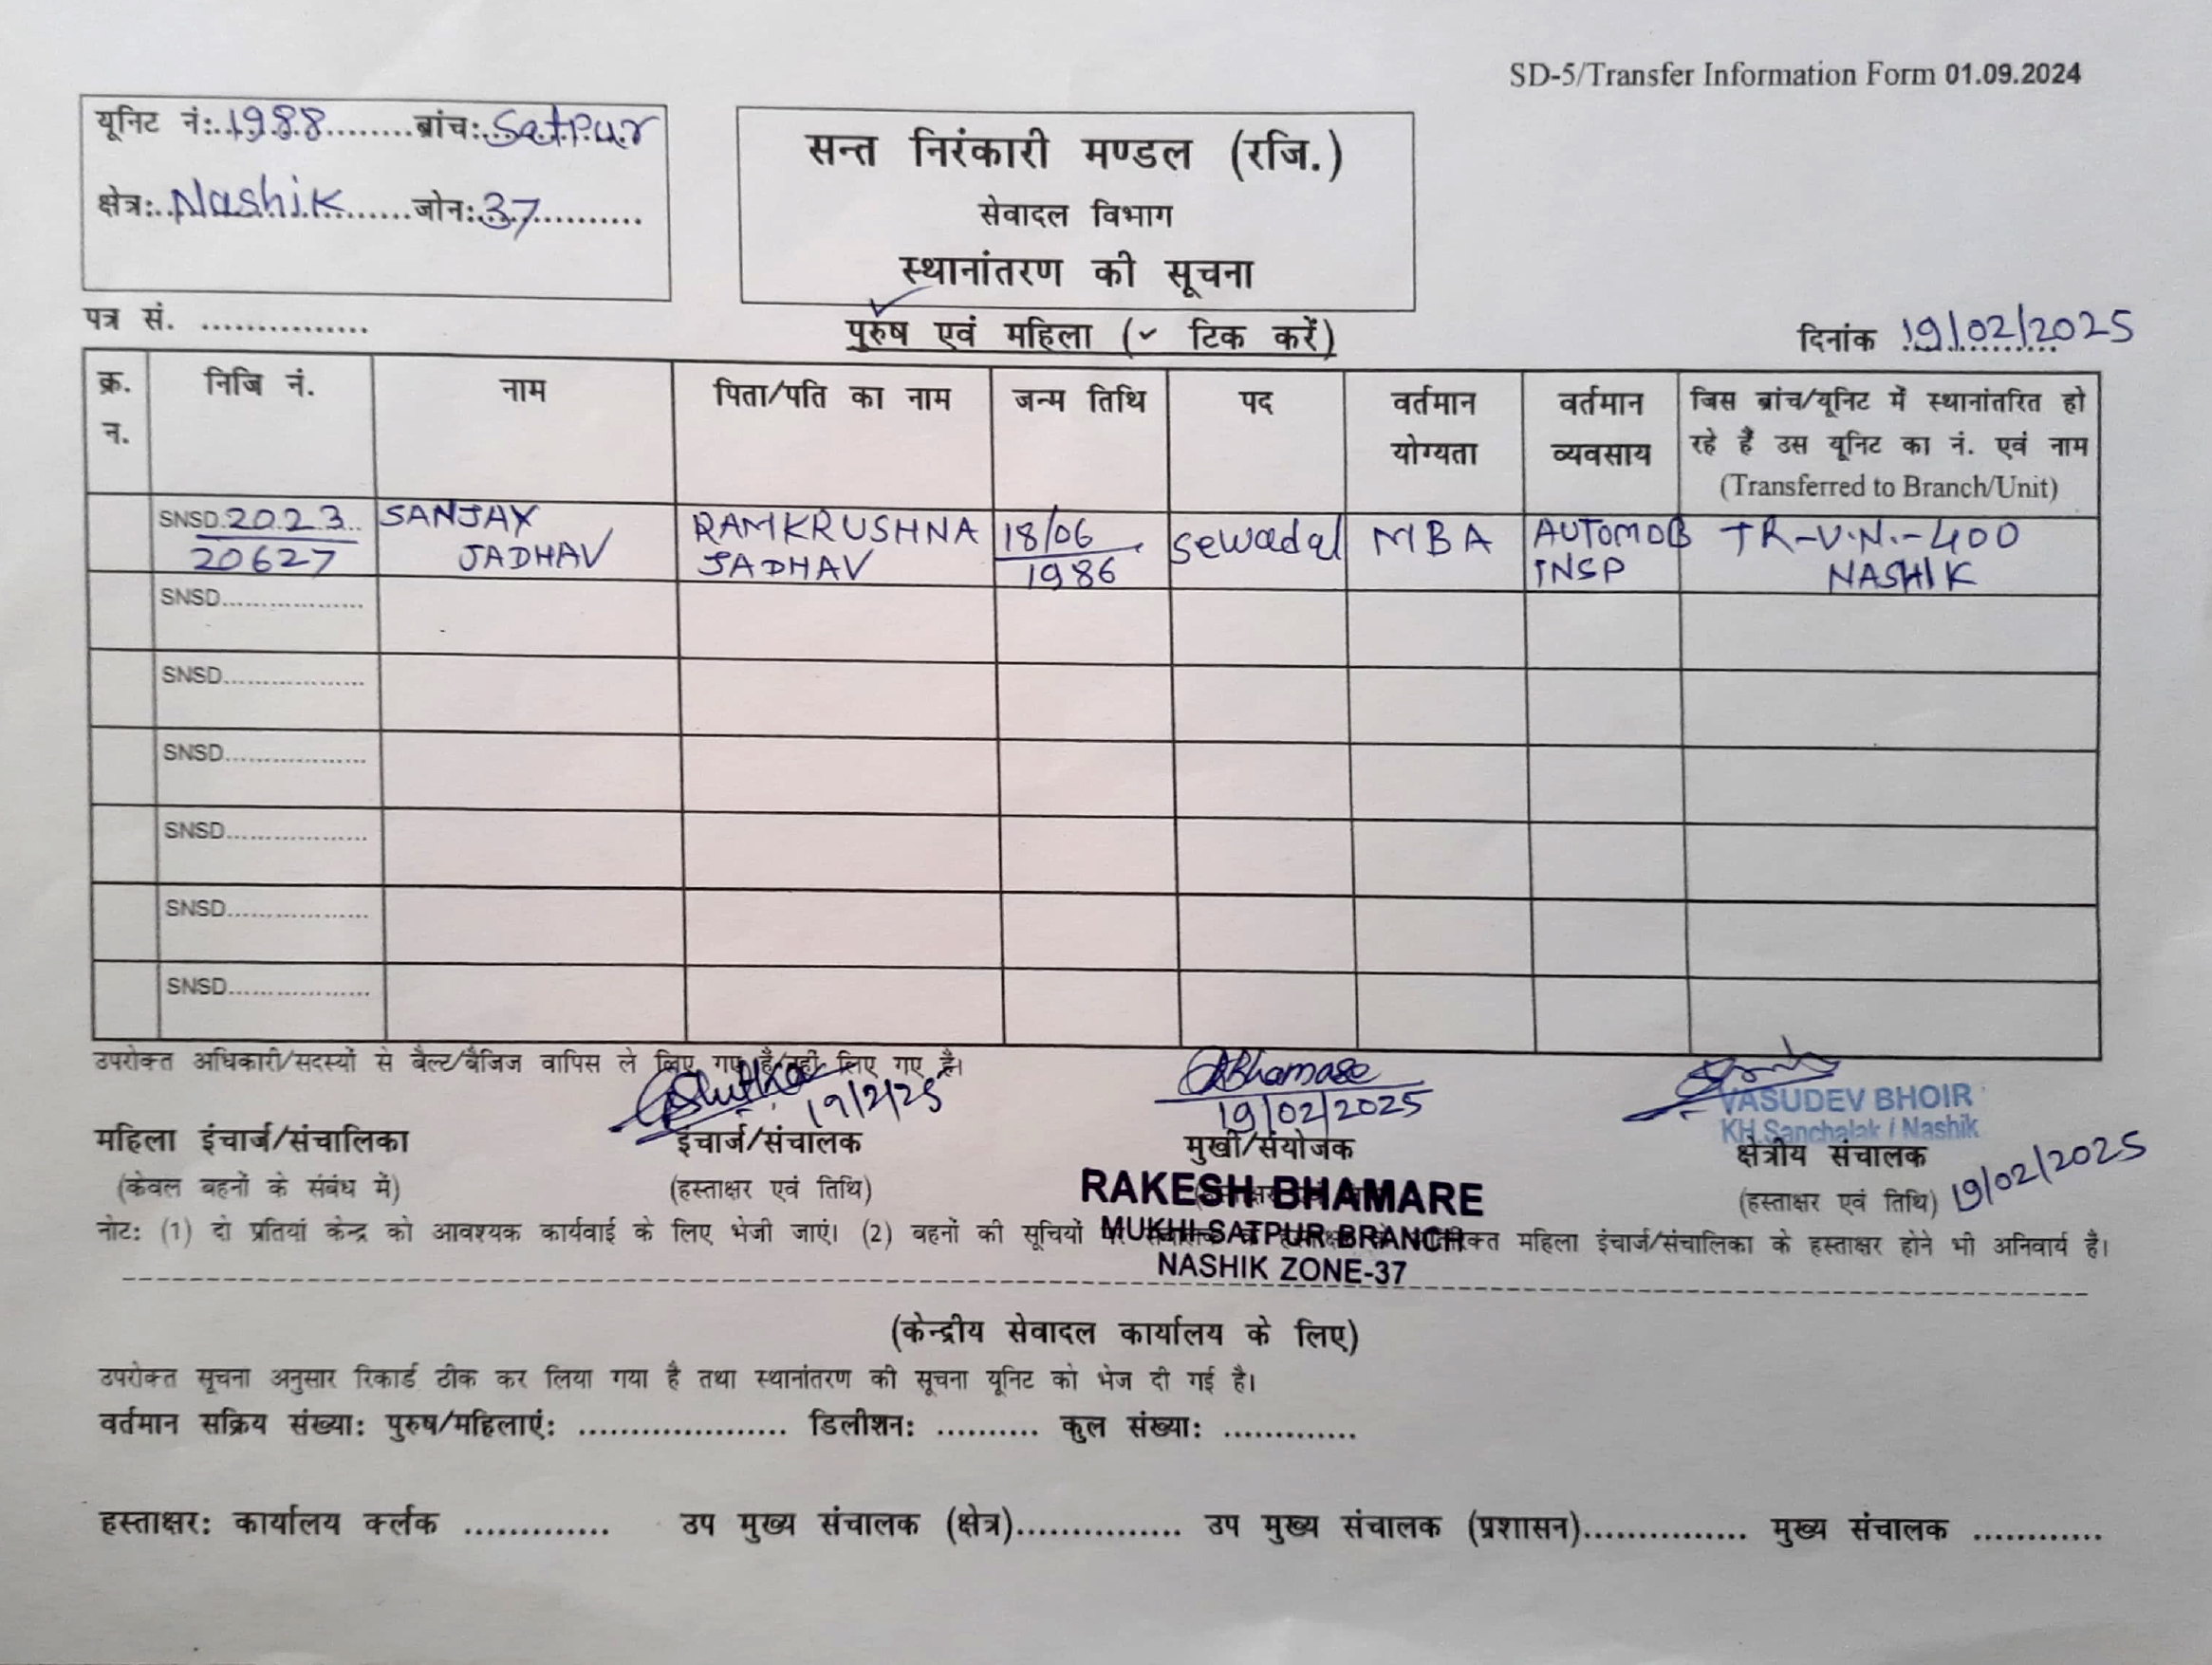 SD-5/Transfer Information Form 01.09.2024
यूनिट नं:.1988........ब्रांच:.Satpur
क्षेत्र:..Nashik.......जोन:.37...........
सन्त निरंकारी मण्डल (रजि.)
सेवादल विभाग
स्थानांतरण की सूचना
पत्र सं. ...............
✓
पुरुष एवं महिला (✓ टिक करें)
दिनांक 19/02/2025
क्र. न.
निजि नं.
नाम
पिता/पति का नाम
जन्म तिथि
पद
वर्तमान योग्यता
वर्तमान व्यवसाय
जिस ब्रांच/यूनिट में स्थानांतरित हो
रहे हैं उस यूनिट का नं. एवं नाम
(Transferred to Branch/Unit)
SNSD 2023 SANJAY RAMKRUSHNA 18/06 sewadal MBA AUTOMOB TR-V.N.-400
20627 JADHAV JADHAV 1986 INSP NASHIK
SNSD...................
SNSD...................
SNSD...................
SNSD...................
SNSD...................
SNSD...................
उपरोक्त अधिकारी/सदस्यों से बैल्ट/बैजिज वापिस ले लिए गए हैं/नहीं लिए गए है।
19/2/25
Bhamare
19/02/2025
VASUDEV BHOIR
KH.Sanchalak / Nashik
महिला इंचार्ज/संचालिका
इंचार्ज/संचालक
मुखी/संयोजक
क्षेत्रीय संचालक
(केवल बहनों के संबंध में)
(हस्ताक्षर एवं तिथि)
RAKESH BHAMARE
(हस्ताक्षर एवं तिथि) 19/02/2025
नोट: (1) दो प्रतियां केन्द्र को आवश्यक कार्यवाई के लिए भेजी जाएं। (2) बहनों की सूचियों महिला इंचार्ज/संचालिका के हस्ताक्षर होने भी अनिवार्य है।
MUKHI-SATPUR-BRANCH
NASHIK ZONE-37
(केन्द्रीय सेवादल कार्यालय के लिए)
उपरोक्त सूचना अनुसार रिकार्ड ठीक कर लिया गया है तथा स्थानांतरण की सूचना यूनिट को भेज दी गई है।
वर्तमान सक्रिय संख्या: पुरुष/महिलाएं: ..................... डिलीशन: .......... कुल संख्या: .............
हस्ताक्षर: कार्यालय क्लंक ............. उप मुख्य संचालक (क्षेत्र)............... उप मुख्य संचालक (प्रशासन)............... मुख्य संचालक ............